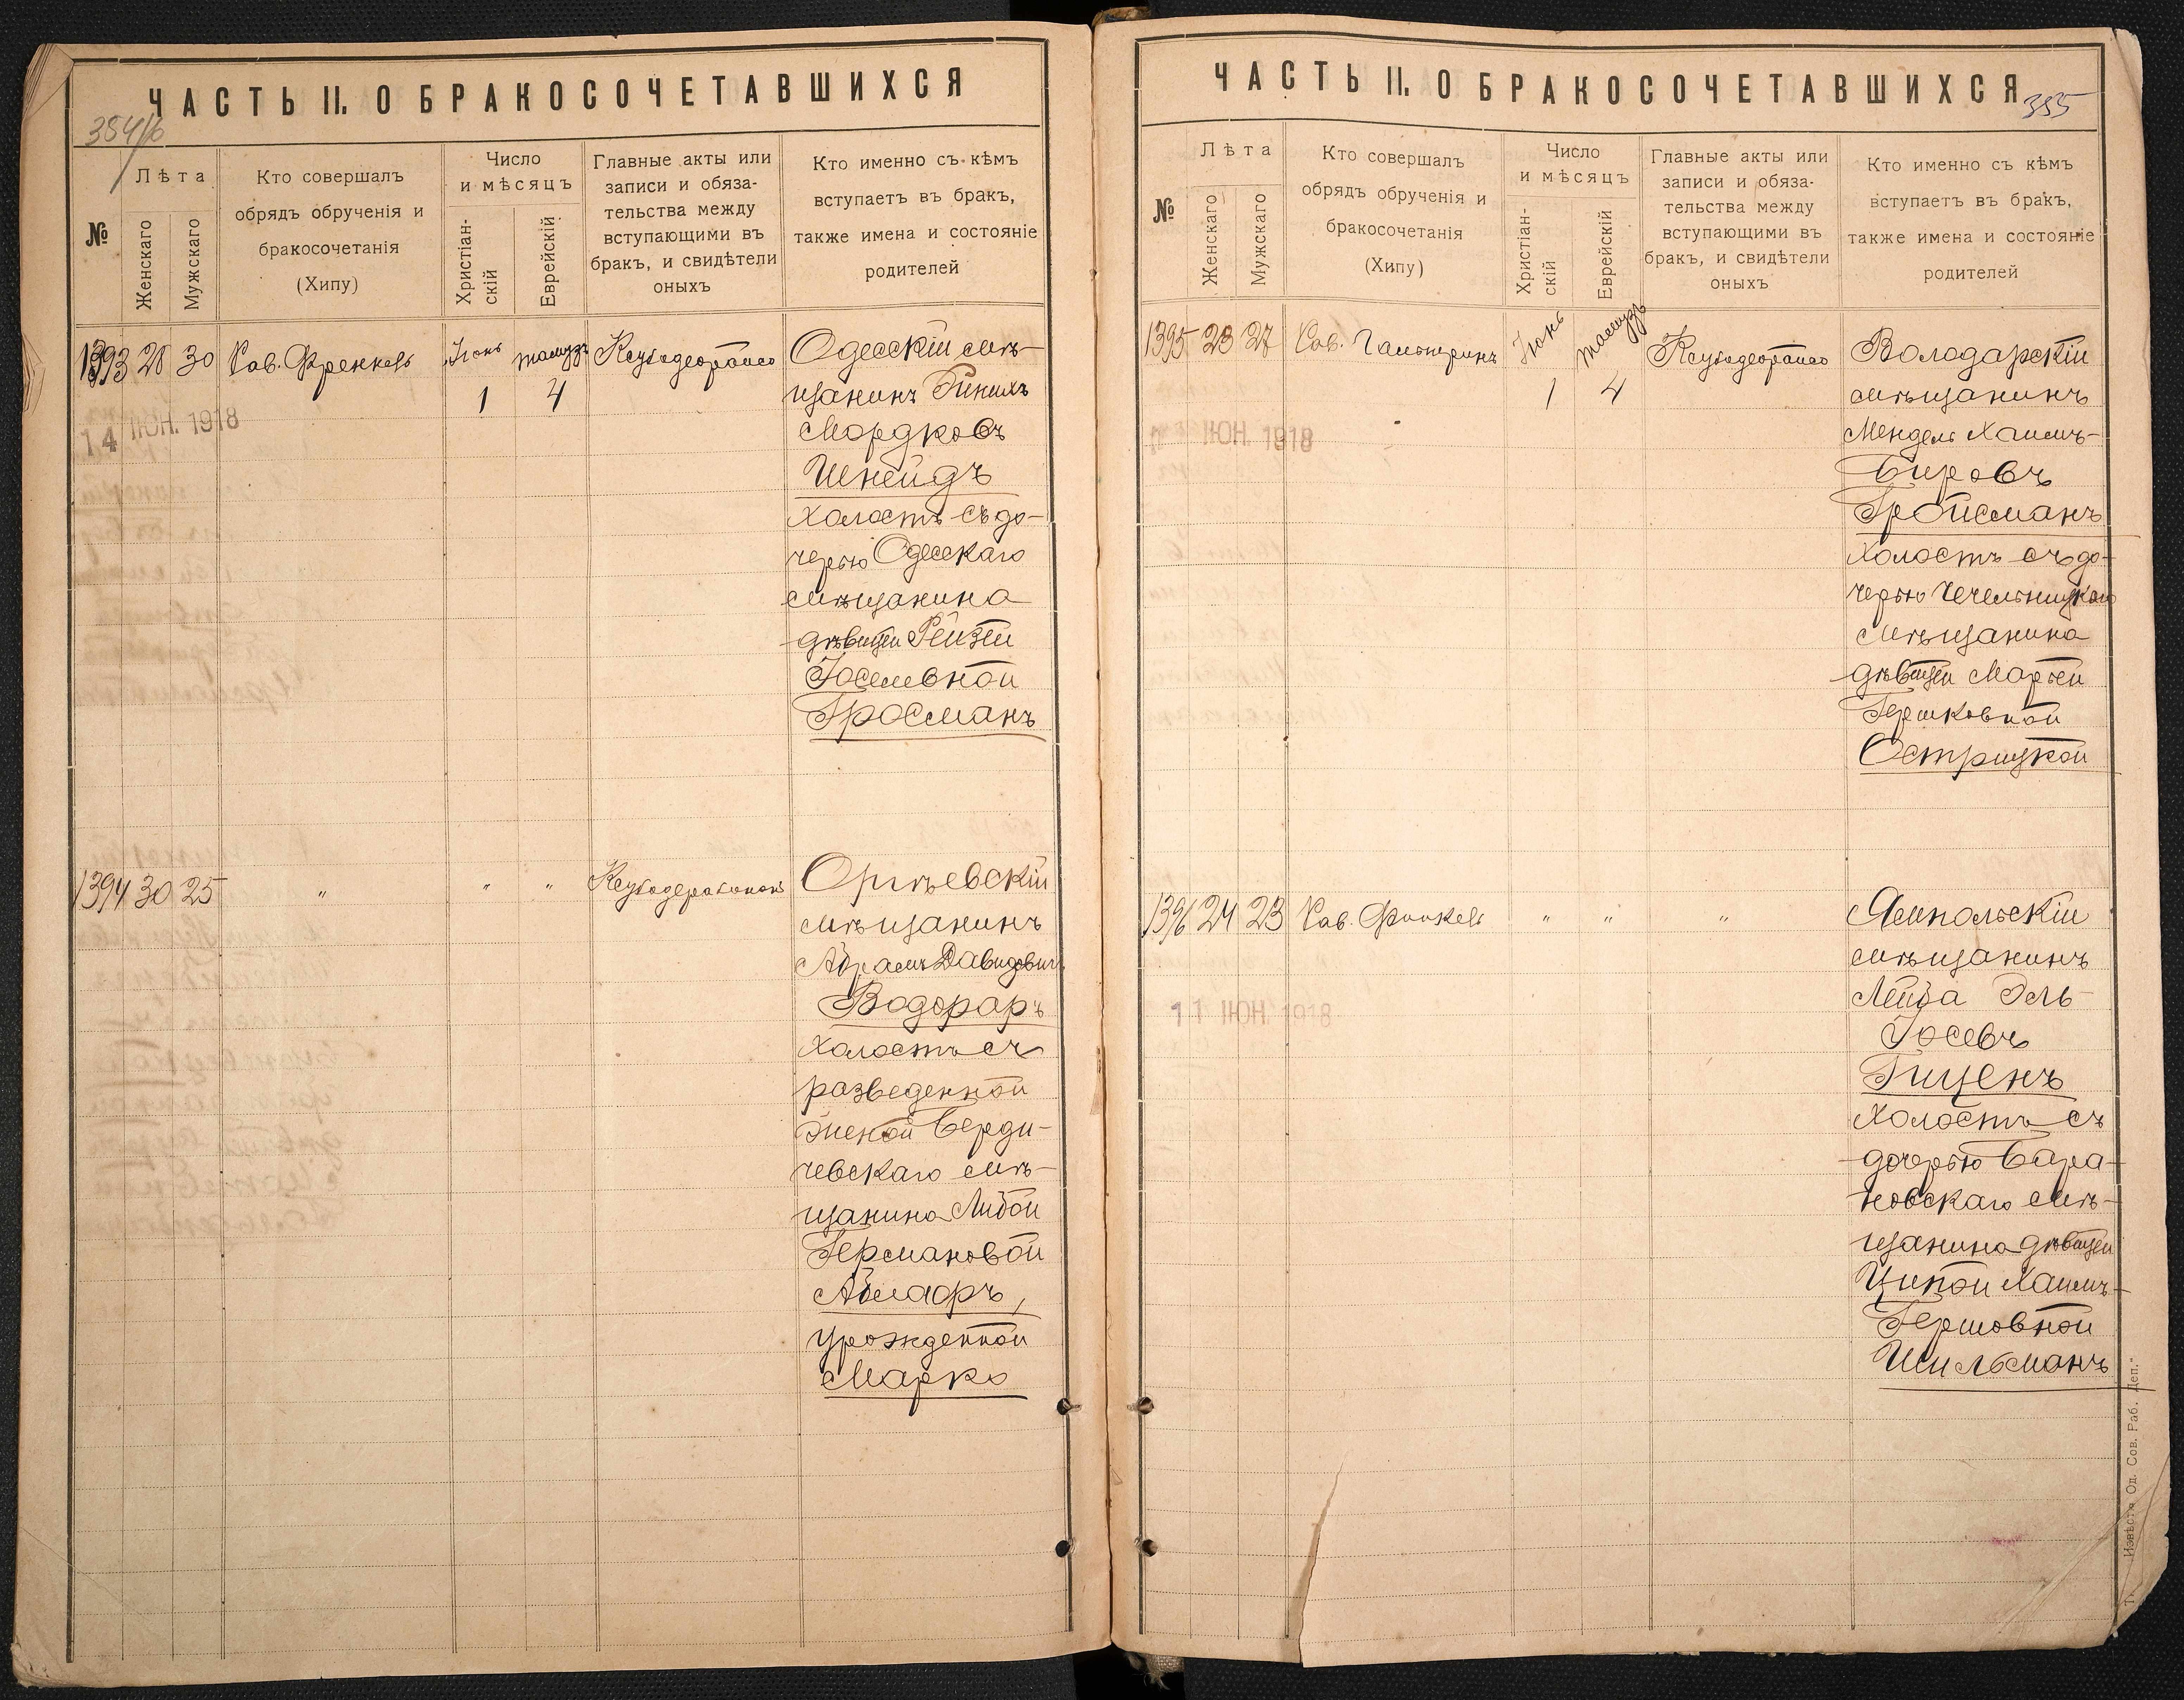 ЧАСТЬ II. О БРАКОСОЧЕТАВШИХСЯ
384/б
№
Лѣта
Женскаго
Мужскаго
Кто совершалъ
обрядъ обрученія и
бракосочетанія
(Хипу)
Число
и мѣсяцъ
Христіан-
скій
Еврейскій
Главные акты или
записи и обяза-
тельства между
вступающими въ
бракъ, и свидѣтели
оныхъ
Кто именно съ кѣмъ
вступаетъ въ бракъ,
также имена и состояніе
родителей
1393 28 30 Рав. Френкель Іюнь тамузъ
1 4
14 ІЮН. 1918
Одесскій мѣ-
щанинъ
Мордковъ
Шнейдъ
холостъ съ до-
черью Одесскаго
мѣщанина
дѣвицей Рейзей
Іоселевной
Гросманъ
1394 30 25 " " "
Оргѣевскій
мѣщанинъ
Абрамъ Давидовичъ
Водораръ
холостъ съ
разведенной
женой Берди-
чевскаго мѣ-
щанина Либой
Германовой
урожденной
Марко
ЧАСТЬ II. О БРАКОСОЧЕТАВШИХСЯ
385
№
Лѣта
Женскаго
Мужскаго
Кто совершалъ
обрядъ обрученія и
бракосочетанія
(Хипу)
Число
и мѣсяцъ
Христіан-
скій
Еврейскій
Главные акты или
записи и обяза-
тельства между
вступающими въ
бракъ, и свидѣтели
оныхъ
Кто именно съ кѣмъ
вступаетъ въ бракъ,
также имена и состояніе
родителей
1395 23 27 Рав. Гальперинъ Іюнь тамузъ
1 4
ІЮН. 1918
Володарскій
мѣщанинъ
Мендель Хаимъ-
Бировъ
Гройсманъ
холостъ съ до-
черью Чечельницкаго
мѣщанина
дѣвицей Марьей
Гершковной
Острицкой
1396 24 23 Рав. Финкель " " "
11 ІЮН. 1918
Ямпольскій
мѣщанинъ
Лейба Эль-
Іосевъ
Гиценъ
холостъ съ
дочерью Бара-
новскаго мѣ-
щанина дѣвицей
Ципой Хаимъ-
Гершовной
Шильманъ
Извѣстія Од. Сов. Раб. Деп."